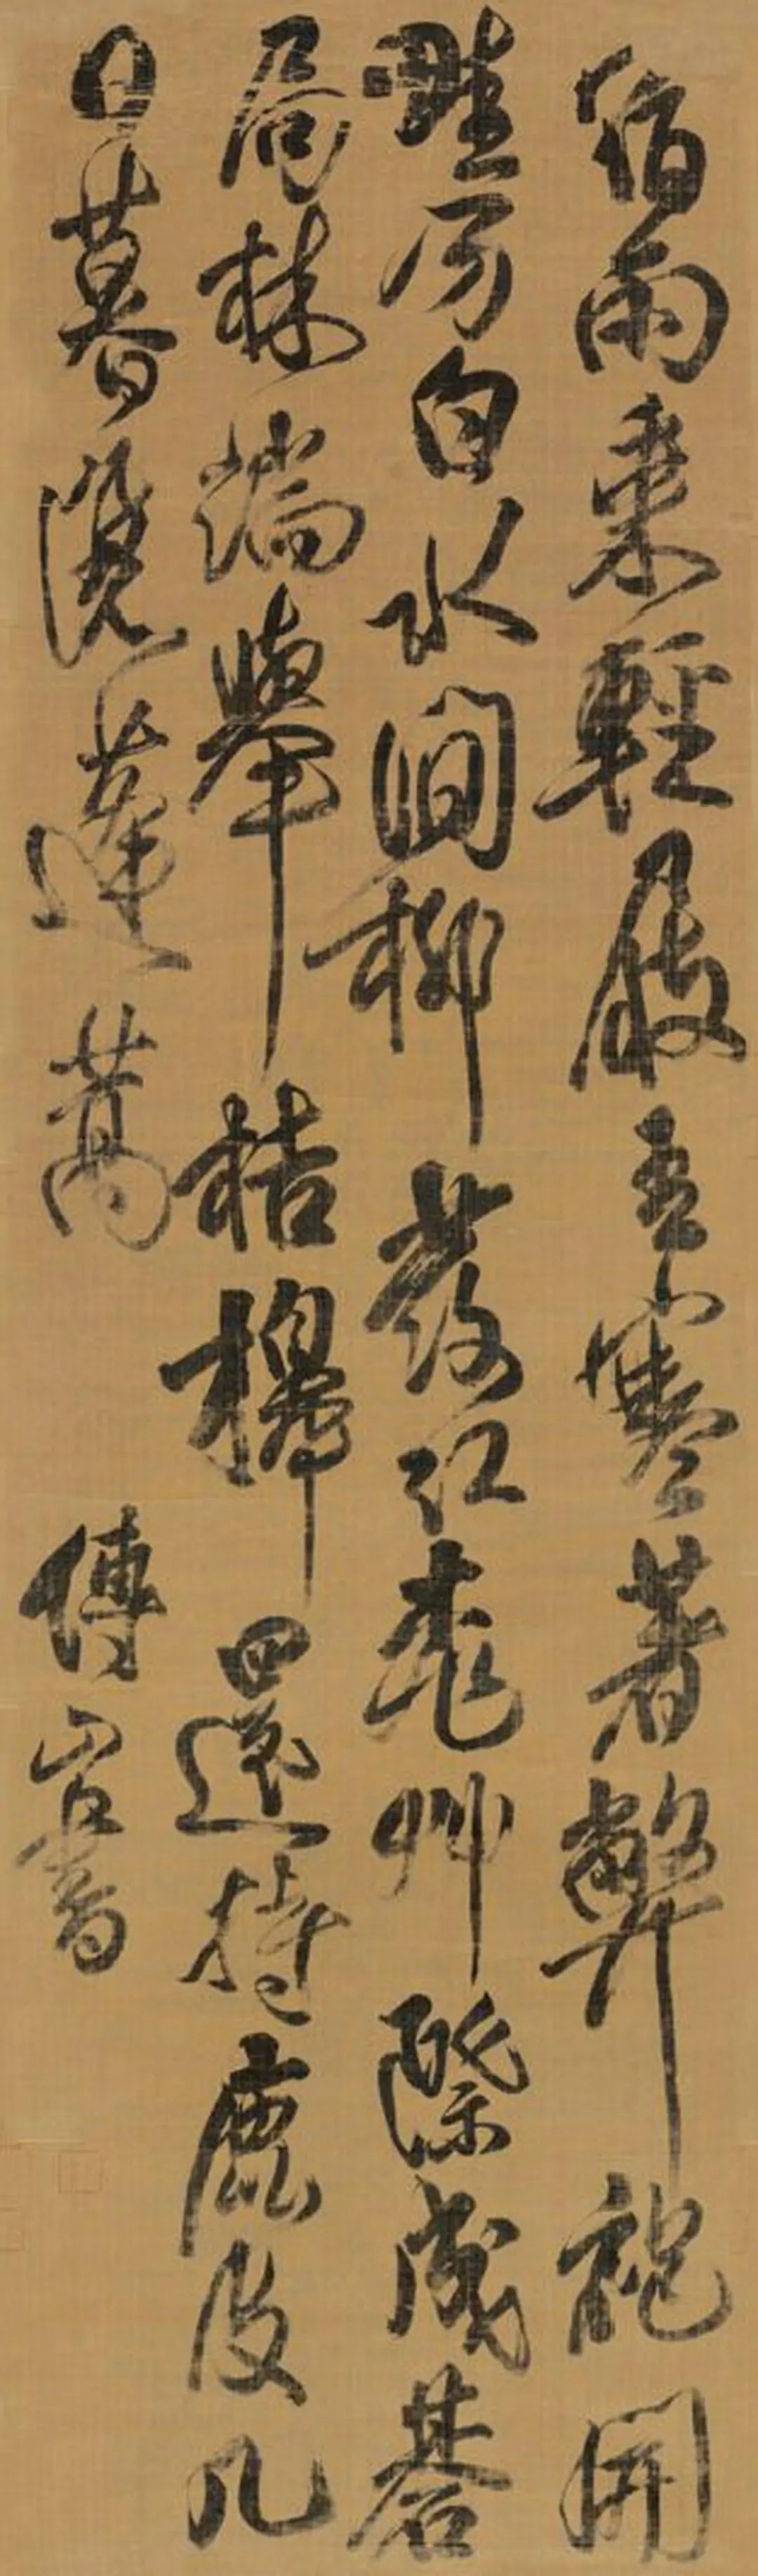 雨乘輕屐春寒著弊袍開
畦分白水間柳發紅桃艸際成碁
局林端舉桔橰還持鹿皮几
日暮隱蓬蒿 傅山書